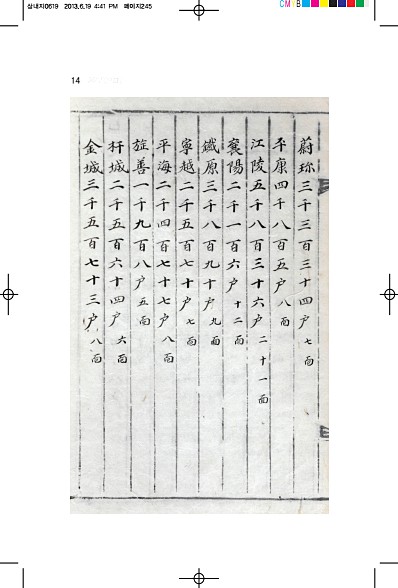 삼내지0619 2013.6.19 4:41 PM 페이지245
CMYB
14
蔚珎三千三百三十四戶 七面
平康四千八百五戶 八面
江陵五千八百三十六戶 二十一面
襄陽二千一百六戶 十二面
鐵原三千八百九十戶 九面
寧越二千五百七十戶 七面
平海二千四百七十七戶 八面
旌善一千九百八戶 五面
杆城二千五百六十四戶 六面
金城三千五百七十三戶 八面